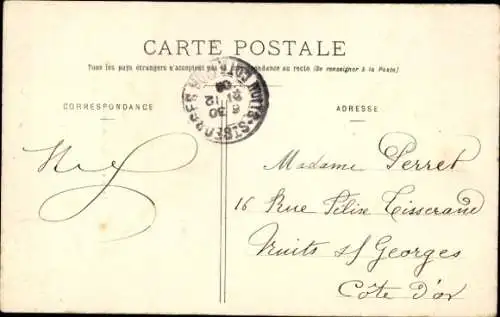 CARTE POSTALE
Tous les pays étrangers n'acceptent pas la correspondance au recto (Se renseigner à la Poste)
CORRESPONDANCE
ADRESSE
Madame Perret
16 Rue Félix Tisserand
Nuits s/ Georges
Côte d'Or